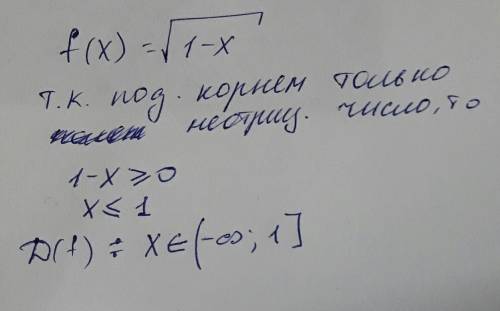 f(x) = √1-x
т.к. под. корнем только
неотриц. число, то
1-x ⩾ 0
x ≤ 1
D(f) ÷ x ∈ (-∞; 1]